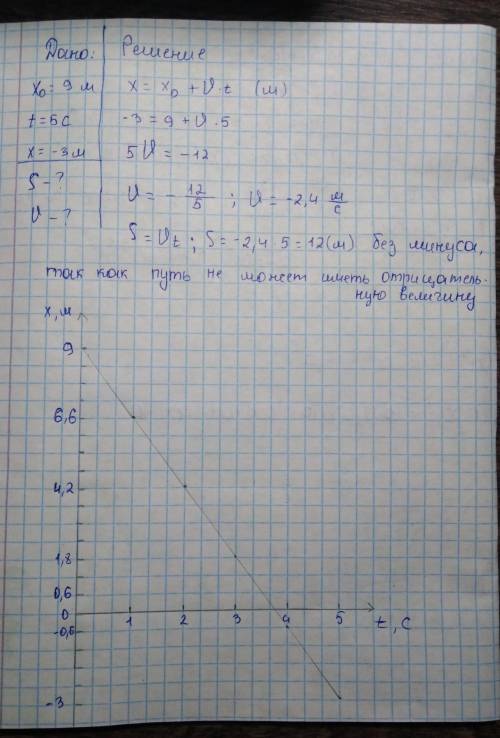 Дано: Решение
x₀ = 9 м x = x₀ + υ·t (м)
t = 5 с -3 = 9 + υ·5
x = -3 м 5υ = -12
S - ? υ = - 12/5 ; υ = -2,4 м/с
υ - ?
S = υt ; S = -2,4·5 = 12(м) без минуса,
так как путь не может иметь отрицатель-
ную величину
x, м
9
6,6
4,2
1,8
0,6
0
-0,6
-3
1 2 3 4 5 t, с